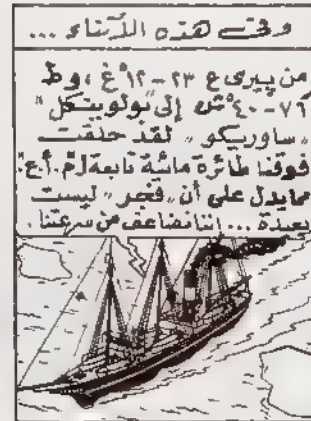 وفي هذه الأثناء ...
من بيري ع ٢٣-١٢° غ ، وط
٧٦-٤٠° ش إلى "بولوبيتكل"
"ساوريكو" لقد حلقت
فوقنا طائرة مائية تابعة ل م.أ.ع.
مما يدل على أن "فجر" ليست
بعيدة ... إننا نضاعف من سرعتنا .